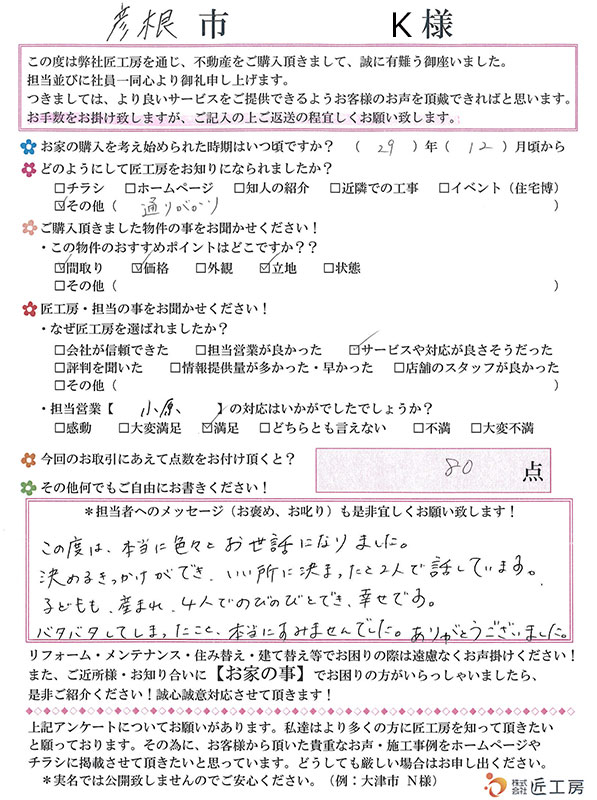 彦根 市 K 様
この度は弊社匠工房を通じ、不動産をご購入頂きまして、誠に有難う御座いました。
担当並びに社員一同心より御礼申し上げます。
つきましては、より良いサービスをご提供できるようお客様のお声を頂戴できればと思います。
お手数をお掛け致しますが、ご記入の上ご返送の程宜しくお願い致します。
お家の購入を考え始められた時期はいつ頃ですか？ （ 29 ）年（ 12 ）月頃から
どのようにして匠工房をお知りになられましたか？
□チラシ □ホームページ □知人の紹介 □近隣での工事 □イベント（住宅博）
☑その他（ 通りがかり ）
ご購入頂きました物件の事をお聞かせください！
・この物件のおすすめポイントはどこですか？？
☑間取り ☑価格 □外観 ☑立地 □状態
□その他（ ）
匠工房・担当の事をお聞かせください！
・なぜ匠工房を選ばれましたか？
□会社が信頼できた □担当営業が良かった ☑サービスや対応が良さそうだった
□評判を聞いた □情報提供量が多かった・早かった □店舗のスタッフが良かった
□その他（ ）
・担当営業【 小原、 】の対応はいかがでしたでしょうか？
□感動 □大変満足 ☑満足 □どちらとも言えない □不満 □大変不満
今回のお取引にあえて点数をお付け頂くと？ 80 点
その他何でもご自由にお書きください！
＊担当者へのメッセージ（お褒め、お叱り）も是非宜しくお願い致します！
この度は、本当に色々とお世話になりました。
決めるきっかけができ、いい所に決まったと2人で話しています。
子どもも、産まれ、4人でのびのびとでき、幸せです。
バタバタしてしまったこと、本当にすみませんでした。ありがとうございました。
リフォーム・メンテナンス・住み替え・建て替え等でお困りの際は遠慮なくお声掛けください！
また、ご近所様・お知り合いに【お家の事】でお困りの方がいらっしゃいましたら、
是非ご紹介ください！誠心誠意対応させて頂きます！
上記アンケートについてお願いがあります。私達はより多くの方に匠工房を知って頂きたい
と願っております。その為に、お客様から頂いた貴重なお声・施工事例をホームページや
チラシに掲載させて頂きたいと思っています。どうしても厳しい場合はお申し出ください。
＊実名では公開致しませんのでご安心ください。（例：大津市 N様）
株式会社 匠工房